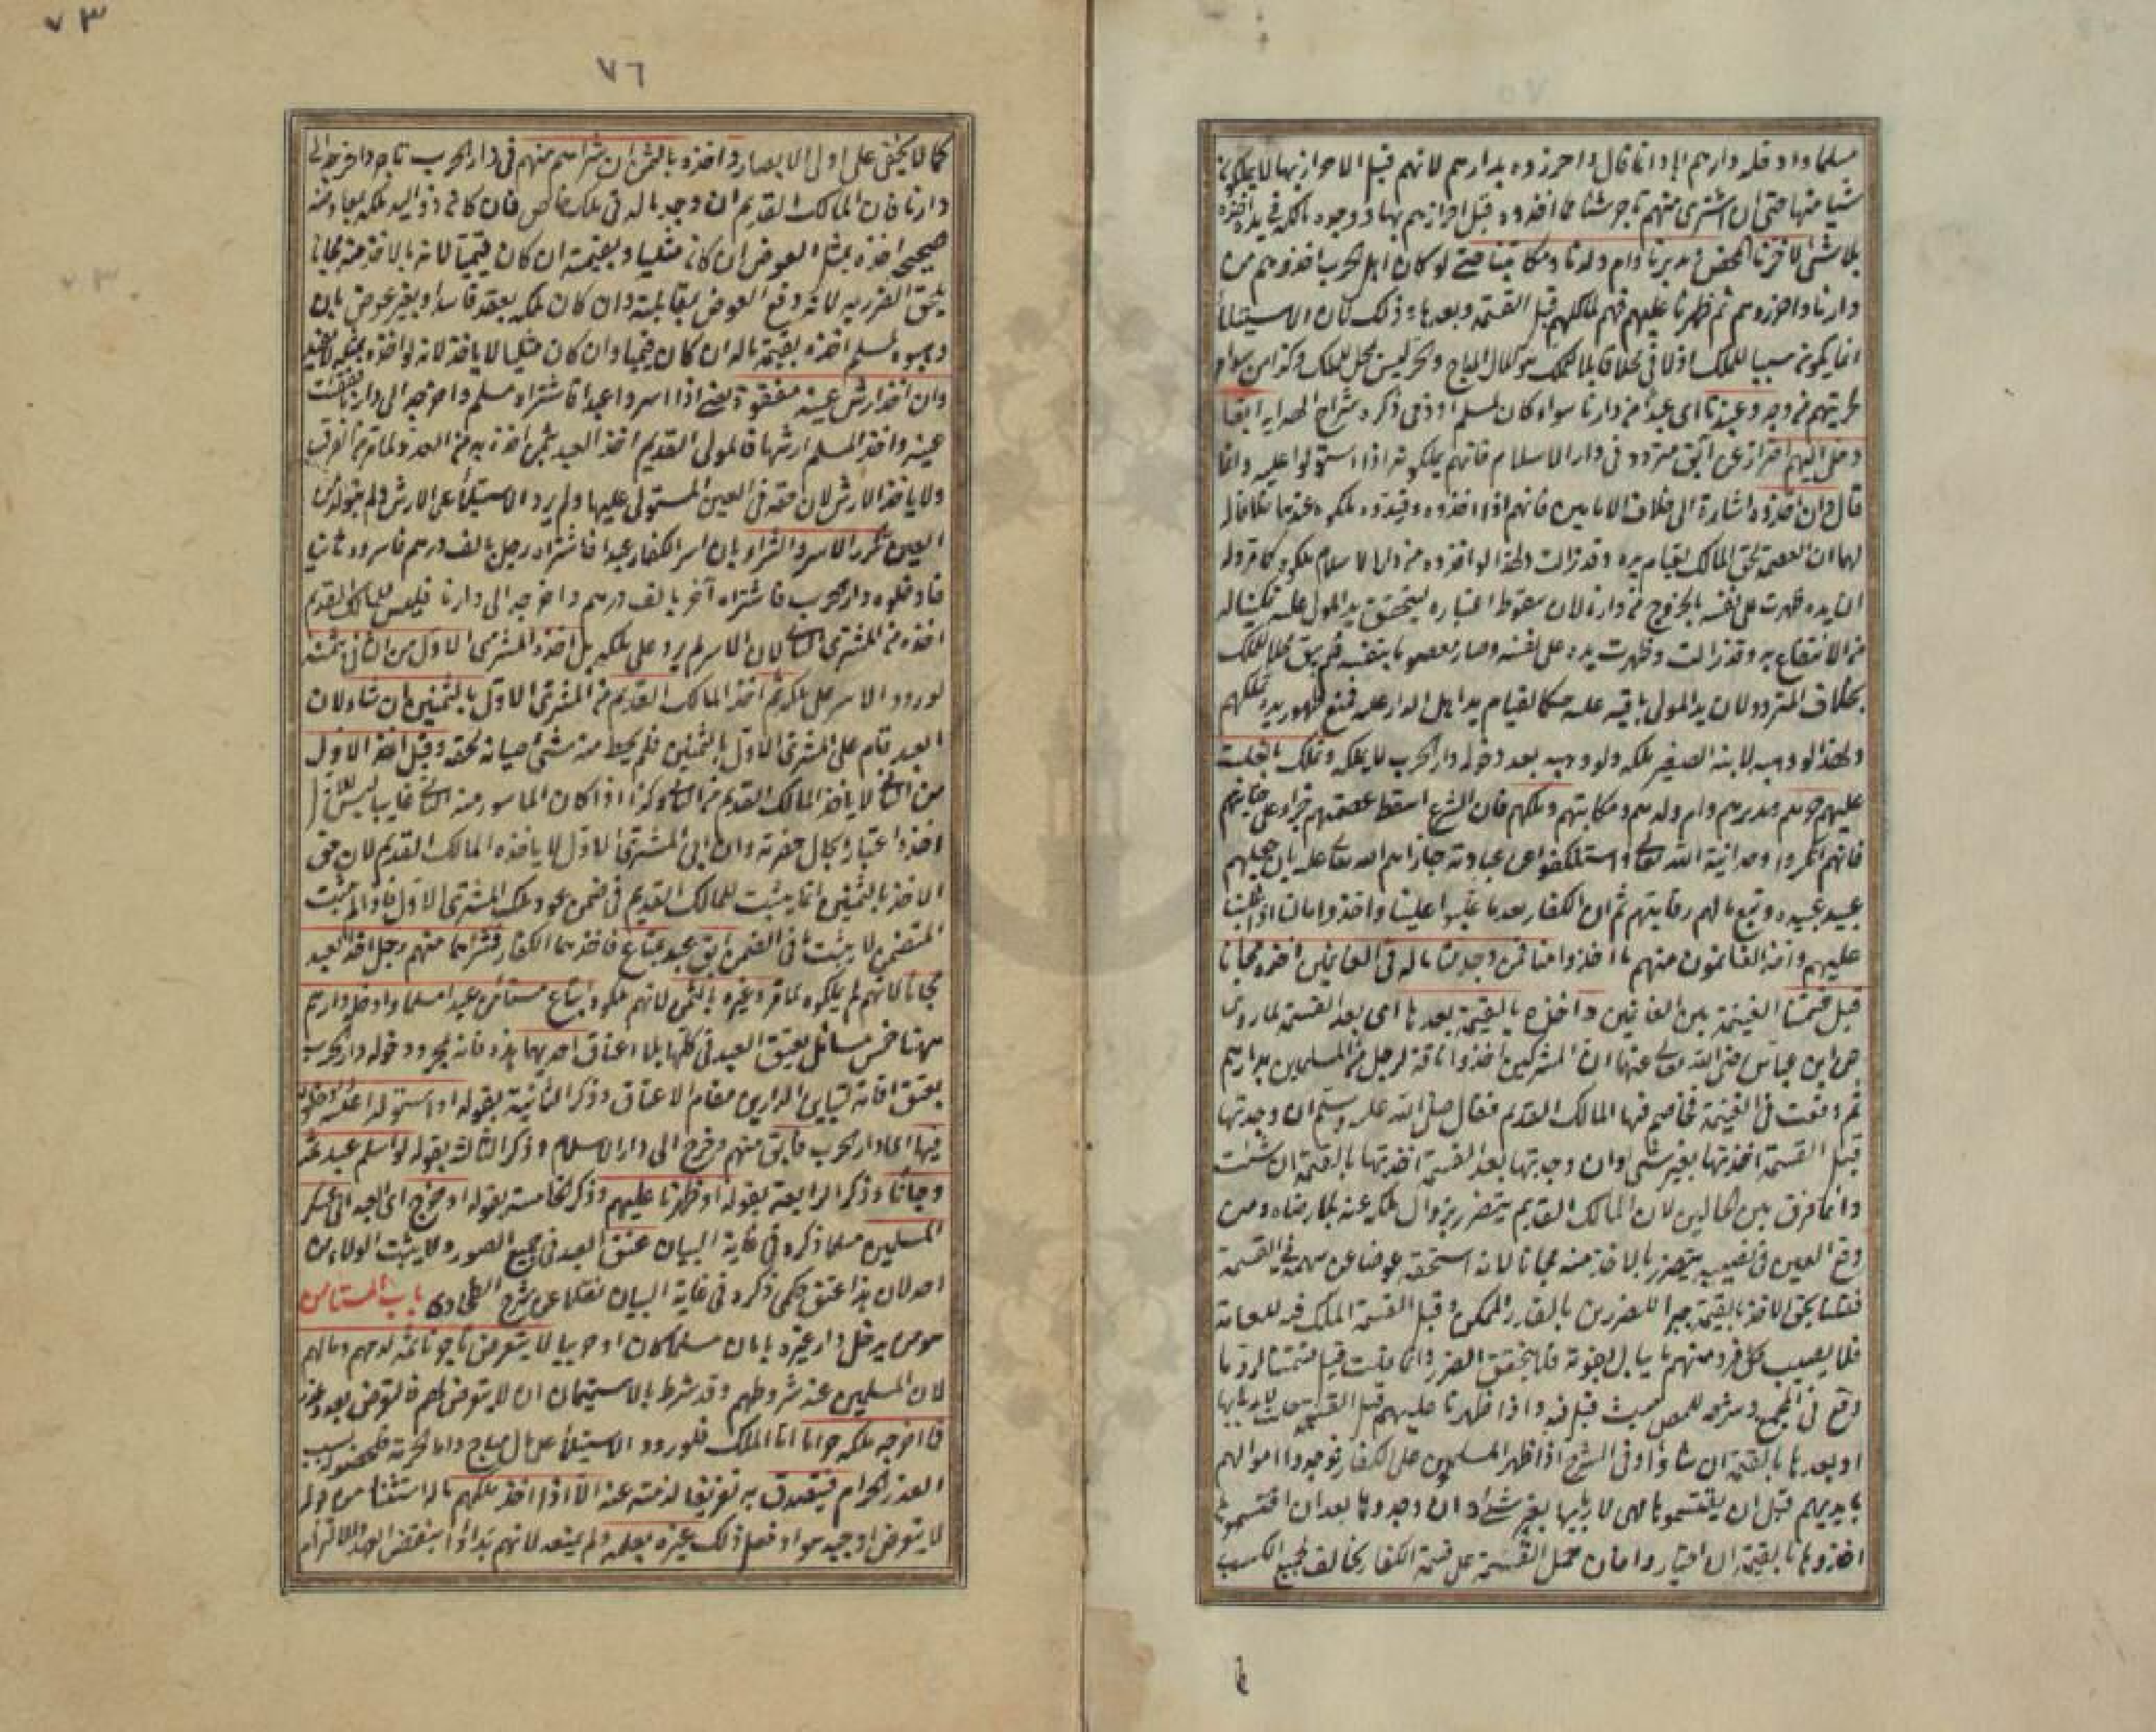 مسلما وادخله دارهم اباوانما قال واحرزوه بدارهم لانهم قبل الاحراز بها لا يملكون
شيئا منها حتى ان اشترى منهم تاجر شيئا مما اخذوه قبل احرازهم بها ووجوده مالكه في يده اخذه
بلا شئ لا حرنا المحض ومدبرنا وام ولدنا ومكاتبنا حتى لو كان اهل الحرب اخذوهم من
دارنا واحرزوهم ثم ظهرنا عليهم فهم لمالكهم قبل القسمة وبعدها وذلك لان الاستيلاء
انما يكون سببا للملك اذا لاقى محلا قابلا للتملك وهو المال المباح والحر ليس بمحل للملك وكذا من سواه
لحريتهم من وجه وعبدنا اى عبدا من دارنا سواء كان لمسلم او ذمى ذكره شراح الهداية آبقا
دخل اليهم احتراز عن آبق متردد فى دار الاسلام فانهم يملكونه اذا استولوا عليه وانما
قال وان اخذوه اشارة الى خلاف الامامين فانهم اذا اخذوه وقيدوه ملكوه عندهما خلافا له
لهما ان العصمة لحق المالك لقيام يده وقد زالت ولهذا لو اخذوه من دار الاسلام ملكوه كما مر وله
ان يده ظهرت على نفسه بالخروج من دارنا لان سقوط اعتباره ليتحقق يد المولى عليه تمكينا له
من الانتفاع به وقد زالت وظهرت يده على نفسه وصار معصوما بنفسه فلم يبق محلا للملك
بخلاف المتردد لان يد المولى باقية عليه حكما لقيام يد اهل الدار عليه فمنع ظهور يده تملكهم
ولهذا لو وهبه لابنه الصغير ملكه ولو وهبه بعد دخوله دار الحرب لا يملكه ونملك بالغلبة
عليهم حرهم ومدبرهم وام ولدهم ومكاتبهم وملكهم فان الشرع اسقط عصمتهم جزاء على جنايتهم
فانهم انكروا وحدانية الله تعالى واستنكفوا عن عبادته جازاهم الله تعالى عليه بان جعلهم
عبيد عبيده وتبع مالهم رقابتهم ثم ان الكفار بعد ما غلبوا علينا واخذوا مالنا اذا غلبنا
عليهم واخذ الغانمون منهم ما اخذوا منا فمن وجد منا ماله فى الغانمين اخذه مجانا
قبل قسمتنا الغنيمة بين الغانمين واخذه بالقيمة بعدها اى بعد القسمة لما روى
عن ابن عباس رضى الله تعالى عنهما ان المشركين اخذوا ناقة لرجل من المسلمين بدارهم
ثم وقعت فى الغنيمة فخاصم فيها المالك القديم فقال صلى الله عليه وسلم ان وجدتها
قبل القسمة اخذتها بغير شئ وان وجدتها بعد القسمة اخذتها بالقيمة ان شئت
وانما فرق بين الحالين لان المالك القديم يتضرر بزوال ملكه عنه بلا رضاه ومن
وقع العين فى نصيبه يتضرر بالاخذ منه مجانا لانه استحقه عوضا عن سهمه فى القسمة
فقلنا بحق الاخذ بالقيمة جبرا للضررين بالقدر الممكن وقبل القسمة الملك فيه للعامة
فلا يصيب كل فرد منهم ما يبالى بفوته فلا يتحقق الضرر وانما قلت قبل قسمتنا لرد ما
وقع فى المجمع وشرحه للمص حيث قيل فيه واذا ظهرنا عليهم قبل القسمة حلت لاربابها
او بعدها بالقيمة ان شاؤا وفى الشرح اذا ظهر المسلمون على الكفار فوجدوا اموالهم
بايديهم قبل ان يقتسموها فهى لاربابها بغير شئ وان وجدوها بعد ان اقتسموها
اخذوها بالقيمة ان اختاروا فان حمل القسمة على قسمة الكفار مخالف لجميع الكتب
٧٦
٧٣
كما لا يخفى على اولى الابصار واخذه بالثمن ان شراه منهم فى دار الحرب تاجر واخرجه الى
دارنا فان المالك القديم ان وجد ماله فى ملك خاص فان كان ذو اليد ملكه بمعاوضة
صحيحة اخذه بمثل العوض ان كان مثليا وبقيمته ان كان قيميا لانه بالاخذ منه مجانا
يلحق الضرر به لانه وقع العوض بمقابلته وان كان ملكه بعقد فاسد او بغير عوض بان
وهبوه لمسلم اخذه بقيمة ماله ان كان قيميا وان كان مثليا لا ياخذه لانه لو اخذه بمثله لا يفيد
وان اخذ ارش عينه مفقوءة يعنى اذا اسروا عبدا فاشتراه مسلم واخرجه الى دارنا ففقئت
عينه واخذ المسلم ارشها فالمولى القديم اخذ العبد بثمن اخذه به من العدو لما مر من الفرق
ولا ياخذ الارش لان حقه فى العين المستولى عليها ولم يرد الاستيلاء على الارش ولم يتولد من
العين تكرر الاسر والشراء بان اسر الكفار عبدا فاشتراه رجل بالف درهم فاسروه ثانيا
فادخلوه دار الحرب فاشتراه آخر بالف درهم واخرجه الى دارنا فليس للمالك القديم
اخذه من المشترى الثانى لان الاسر لم يرد على ملكه بل اخذ المشترى الاول من الثانى بثمنه
لورود الاسر على ملكه ثم اخذ المالك القديم من المشترى الاول بالثمنين ان شاء لان
العبد قام على المشترى الاول بالثمنين فلم يحط منه شئ صيانة لحقه وقبل اخذ الاول
من الثانى لا ياخذ المالك القديم من الثانى وكذا اذا كان الماسور منه الثانى غايبا ليس للاول
اخذه اعتبارا بحال حضرته وان ابى المشترى الاول لا ياخذه المالك القديم لان حق
الاخذ بالثمنين انما يثبت للمالك القديم فى ضمن عود ملك المشترى الاول فاذا لم يثبت
المتضمن لا يثبت ما فى الضمن ابق عبد بمتاع فاخذهما الكفار فشراهما منهم رجل اخذ العبد
مجانا لانهم لم يملكوه لما مر وغيره بالثمن لانهم ملكوه ابتاع مستامن عبدا مسلما وادخله دارهم
ههنا خمس مسائل يعتق العبد فى كلها بلا اعتاق احديهما هذه فانه بمجرد دخوله دار الحرب
يعتق اقامة لتباين الدارين مقام الاعتاق وذكر الثانية بقوله او استولوا عليه وادخلوه
فيها اى دار الحرب فابق منهم وخرج الى دار الاسلام وذكر الثالثة بقوله او اسلم عبد ثمه
وجاءنا وذكر الرابعة بقوله او ظهرنا عليهم وذكر الخامسة بقوله او خرج اى العبد الى عسكر
المسلمين مسلما ذكره فى غاية البيان عتق العبد فى جميع الصور ولا يثبت الولاء من
احد لان هذا عتق حكمى ذكره فى غاية البيان نقلا عن شرح الطحاوى باب المستامن
هو من يدخل دار غيره بامان مسلما كان او حربيا لا يتعرض تاجرنا ثمه لدمهم ومالهم
لان المسلمين عند شروطهم وقد شرط بالاستيمان ان لا يتعرض لهم فالتعرض بعده غدر
فما اخرجه ملكه حراما اما الملك فلورود الاستيلاء على مال مباح واما الحرمة فلحصوله بسبب
الغدر الحرام فيتصدق به تفريغا لذمته عنه الا اذا اخذ ملكهم ماله استثناء من قوله
لا يتعرض او حبسه او فعل ذلك غيره بعلمه ولم يمنعه لانهم بداؤا بنقض العهد والالتزام